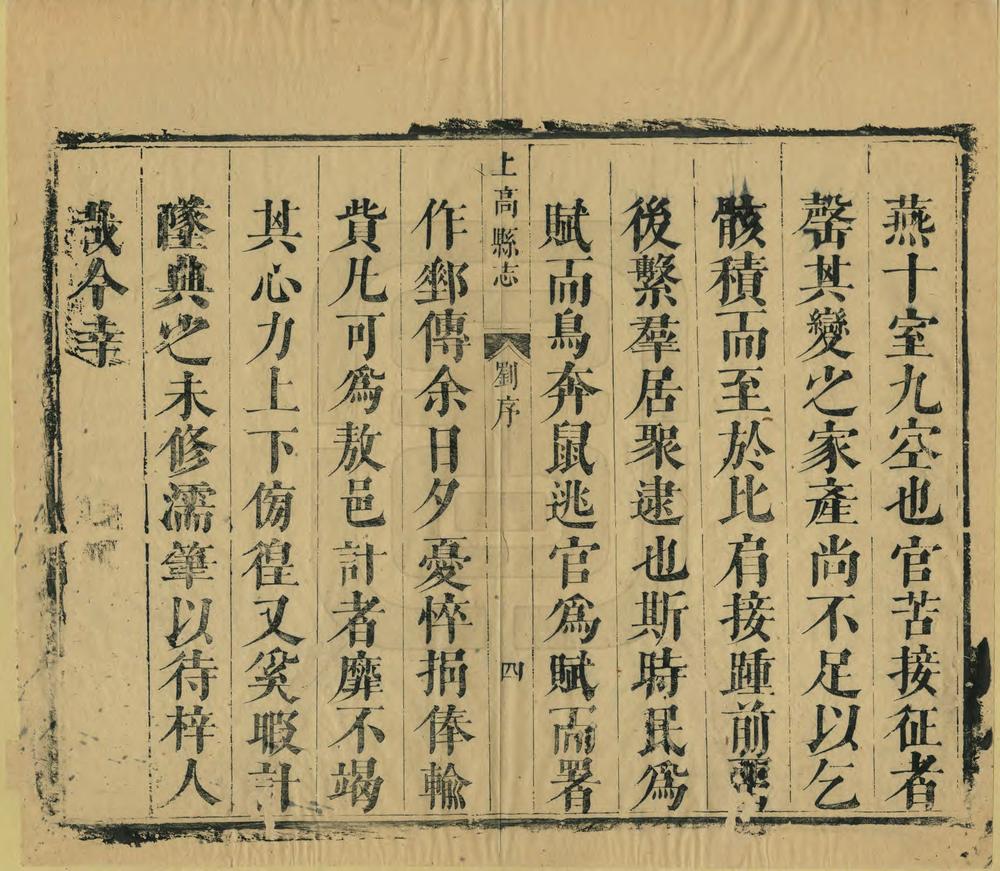 燕十室九空也官苦接征者
罄其變少家產尚不足以乞
骸積而至於比肩接踵前
後繫羣居眾逮也斯時民爲
賦而鳥奔鼠逃官爲賦而署
上高縣志
劉序
四
作郵傳余日夕憂悴捐俸輸
貲凡可爲敖邑計者靡不竭
其心力上下徬徨又奚暇計
墜典之未修濡筆以待梓人
哉今幸